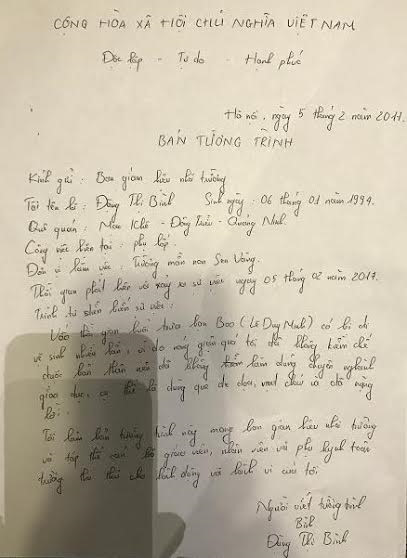 CỘNG HÒA XÃ HỘI CHỦ NGHĨA VIỆT NAM
Độc lập - Tự do - Hạnh phúc
Hà nội, ngày 5 tháng 2 năm 2017.
BẢN TƯỜNG TRÌNH
Kính gửi : Ban giám hiệu nhà trường
Tôi tên là : Đặng Thị Bình Sinh ngày : 06 tháng 01 năm 1994.
Quê quán : Mạo Khê - Đông Triều - Quảng Ninh.
Công việc hiện tại : phụ lớp.
Đơn vị làm việc : Trường mầm non Sen Vàng.
Thời gian phát hiện và xảy ra sự việc ngày 05 tháng 02 năm 2017.
Trình tự diễn biến sự việc :
Vào thời gian buổi trưa bạn Bảo (Lê Duy Minh) có bị đi
vệ sinh nhiều lần, vì do nóng giận quá tôi đã không kiềm chế
được bản thân nên đã không làm đúng chuyên ngành
giáo dục, cụ thể là dùng que đe dọa, và có nặng
lời.
Tôi làm bản tường trình này mong ban giám hiệu nhà trường
và tập thể cán bộ giáo viên, nhân viên và phụ huynh toàn
trường tha thứ cho hành động và hành vi của tôi
Người viết tường trình
Bình
Đặng Thị Bình